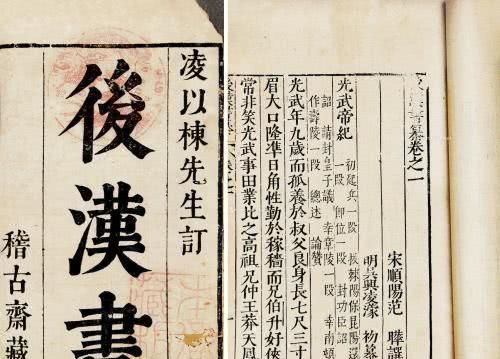 凌以棟先生訂
後漢書
稽古齋藏
後漢書纂卷之一
宋順陽范 曄譔
明吳興凌濛 初纂
光武帝紀 初起兵一段 拔棘陽保昆陽還
一段 即位一段 封功臣詔
詔 請封皇子議 幸章陵一段 幸南頓
作壽陵一段 總述 論贊
光武年九歲而孤養於叔父良身長七尺三寸
眉大口隆準日角性勤於稼穡而兄伯升好俠
常非笑光武事田業比之高祖兄仲王莽天鳳